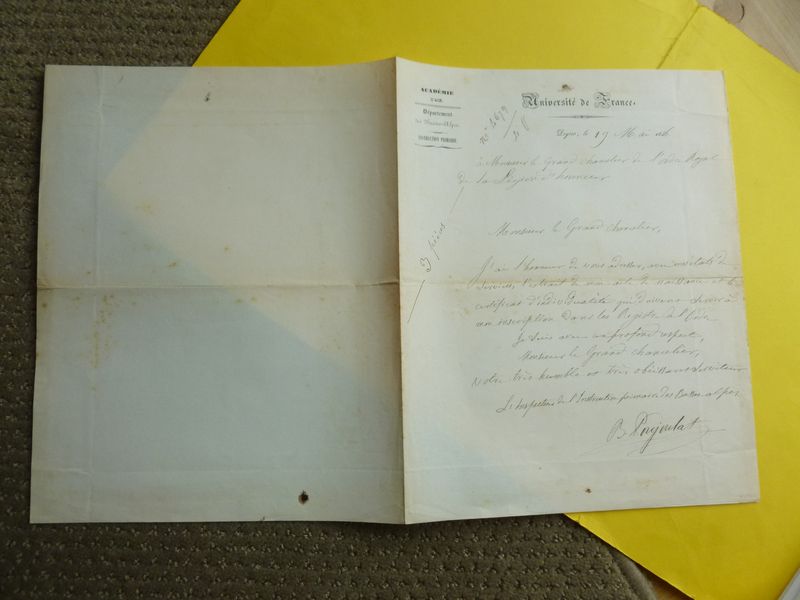 ACADÉMIE
D'AIX.
Département
des Basses-Alpes
INSTRUCTION PRIMAIRE
Université de France.
Digne, le 19 Mai
à Monsieur le Grand chancelier de l'ordre Royal
de la Légion d'honneur
3 pièces
Monsieur le Grand chancelier,
J'ai l'honneur de vous adresser, avec mes états de
services, l'extrait de mon acte de naissance et le
certificat d'individualité qui doivent servir à
mon inscription dans les Registres de l'Ordre
Je suis avec un profond respect,
Monsieur le Grand chancelier,
Votre très humble et très obéissant serviteur
L'Inspecteur de l'Instruction primaire des Basses alpes
B. Poujoulat